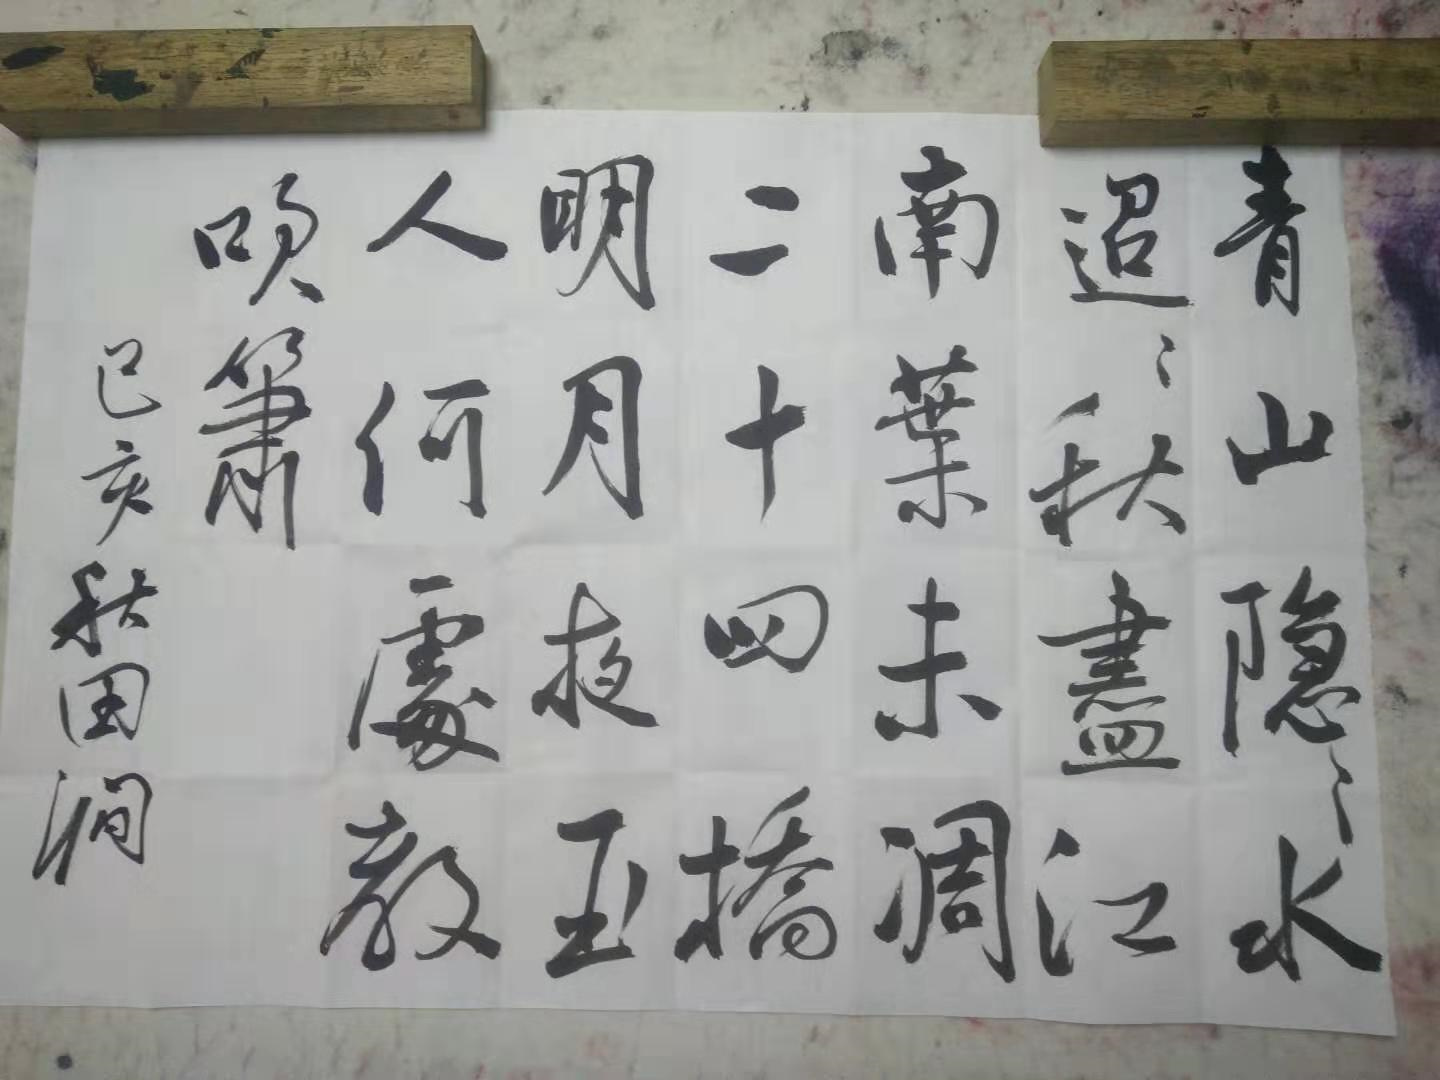 青山隐〻水
迢〻秋盡江
南葉未凋
二十四橋
明月夜玉
人何處教
吹簫
己亥秋田澗